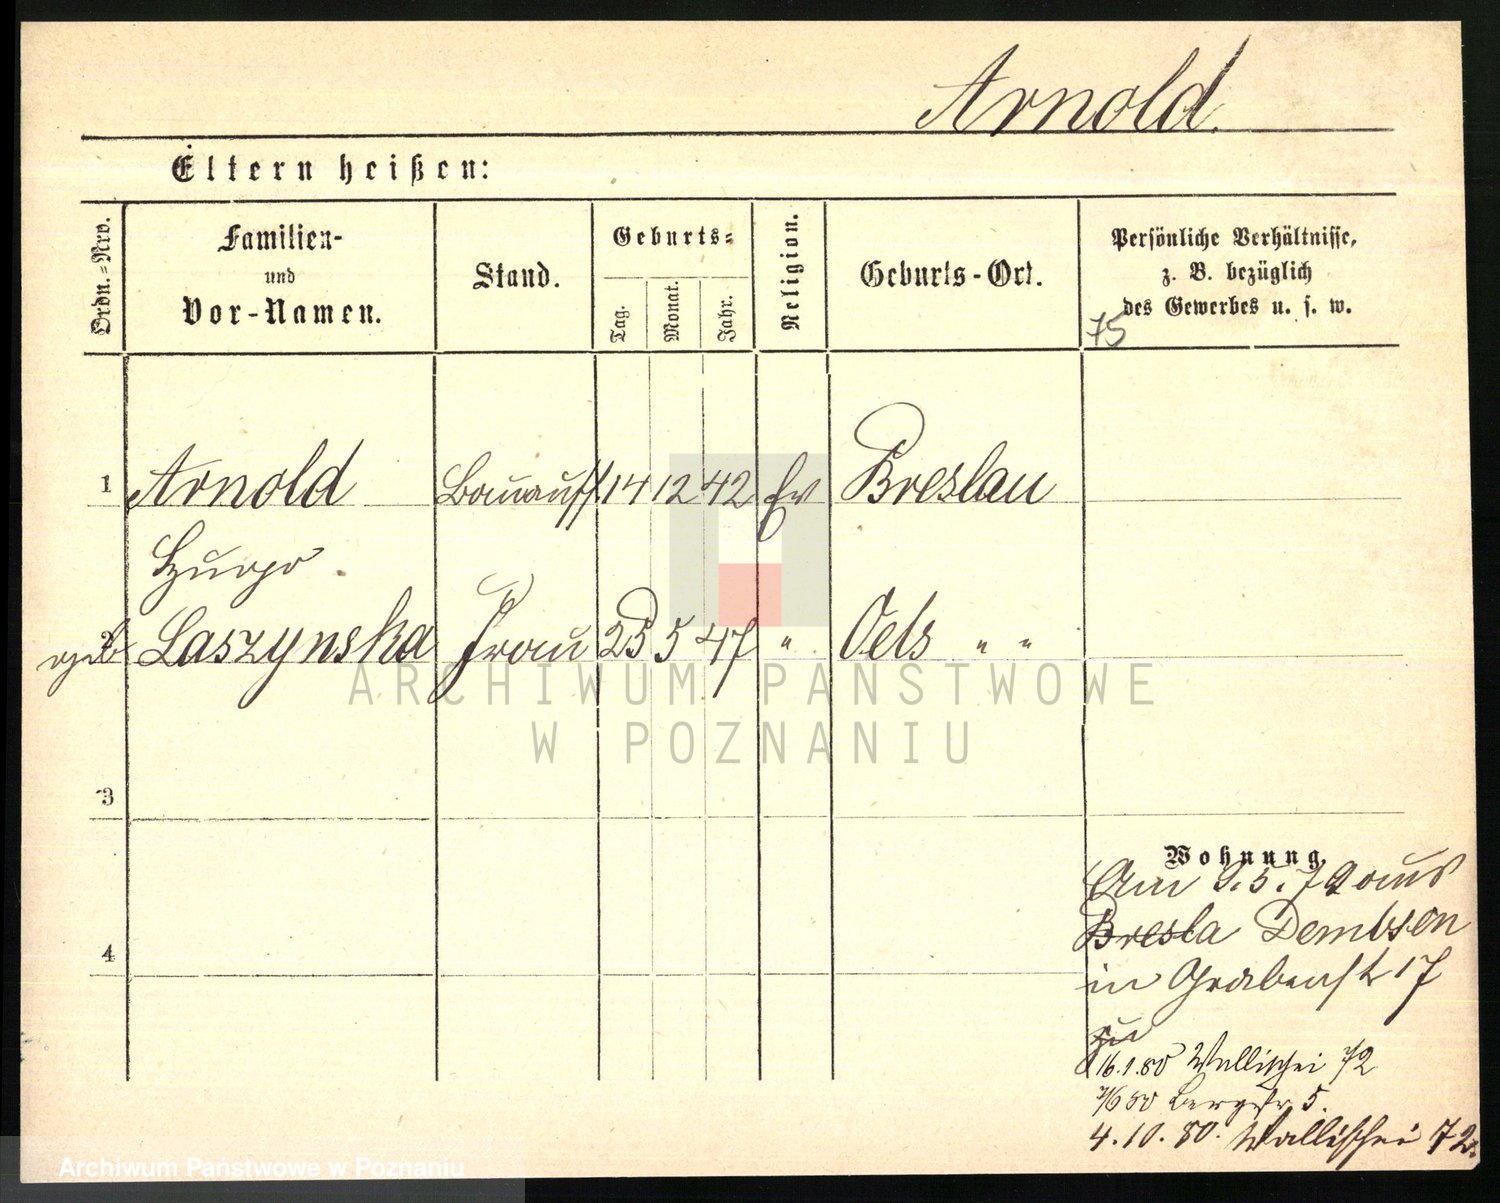 Arnold.
Eltern heißen:
Ordn.=Nro.
Familien-
und
Vor-Namen.
Stand.
Geburts=
Tag.
Monat.
Jahr.
Religion.
Geburts-Ort.
Persönliche Verhältnisse,
z. B. bezüglich
des Gewerbes u. s. w.
75
1 Arnold Bauauff 14 12 42 Ev Breslau
Hugo
2 geb Laszynska Frau 25 5 47 " Oels " "
ARCHIWUM PAŃSTWOWE
W POZNANIU
3
Wohnung.
Am 9.5.79 aus
Bresla Dembsen
4
in Grabenstr 17
zu
16.1.80 Wallischei 72
80 Bergstr 5.
4.10.80. Wallischei 72.
Archiwum Państwowe w Poznaniu